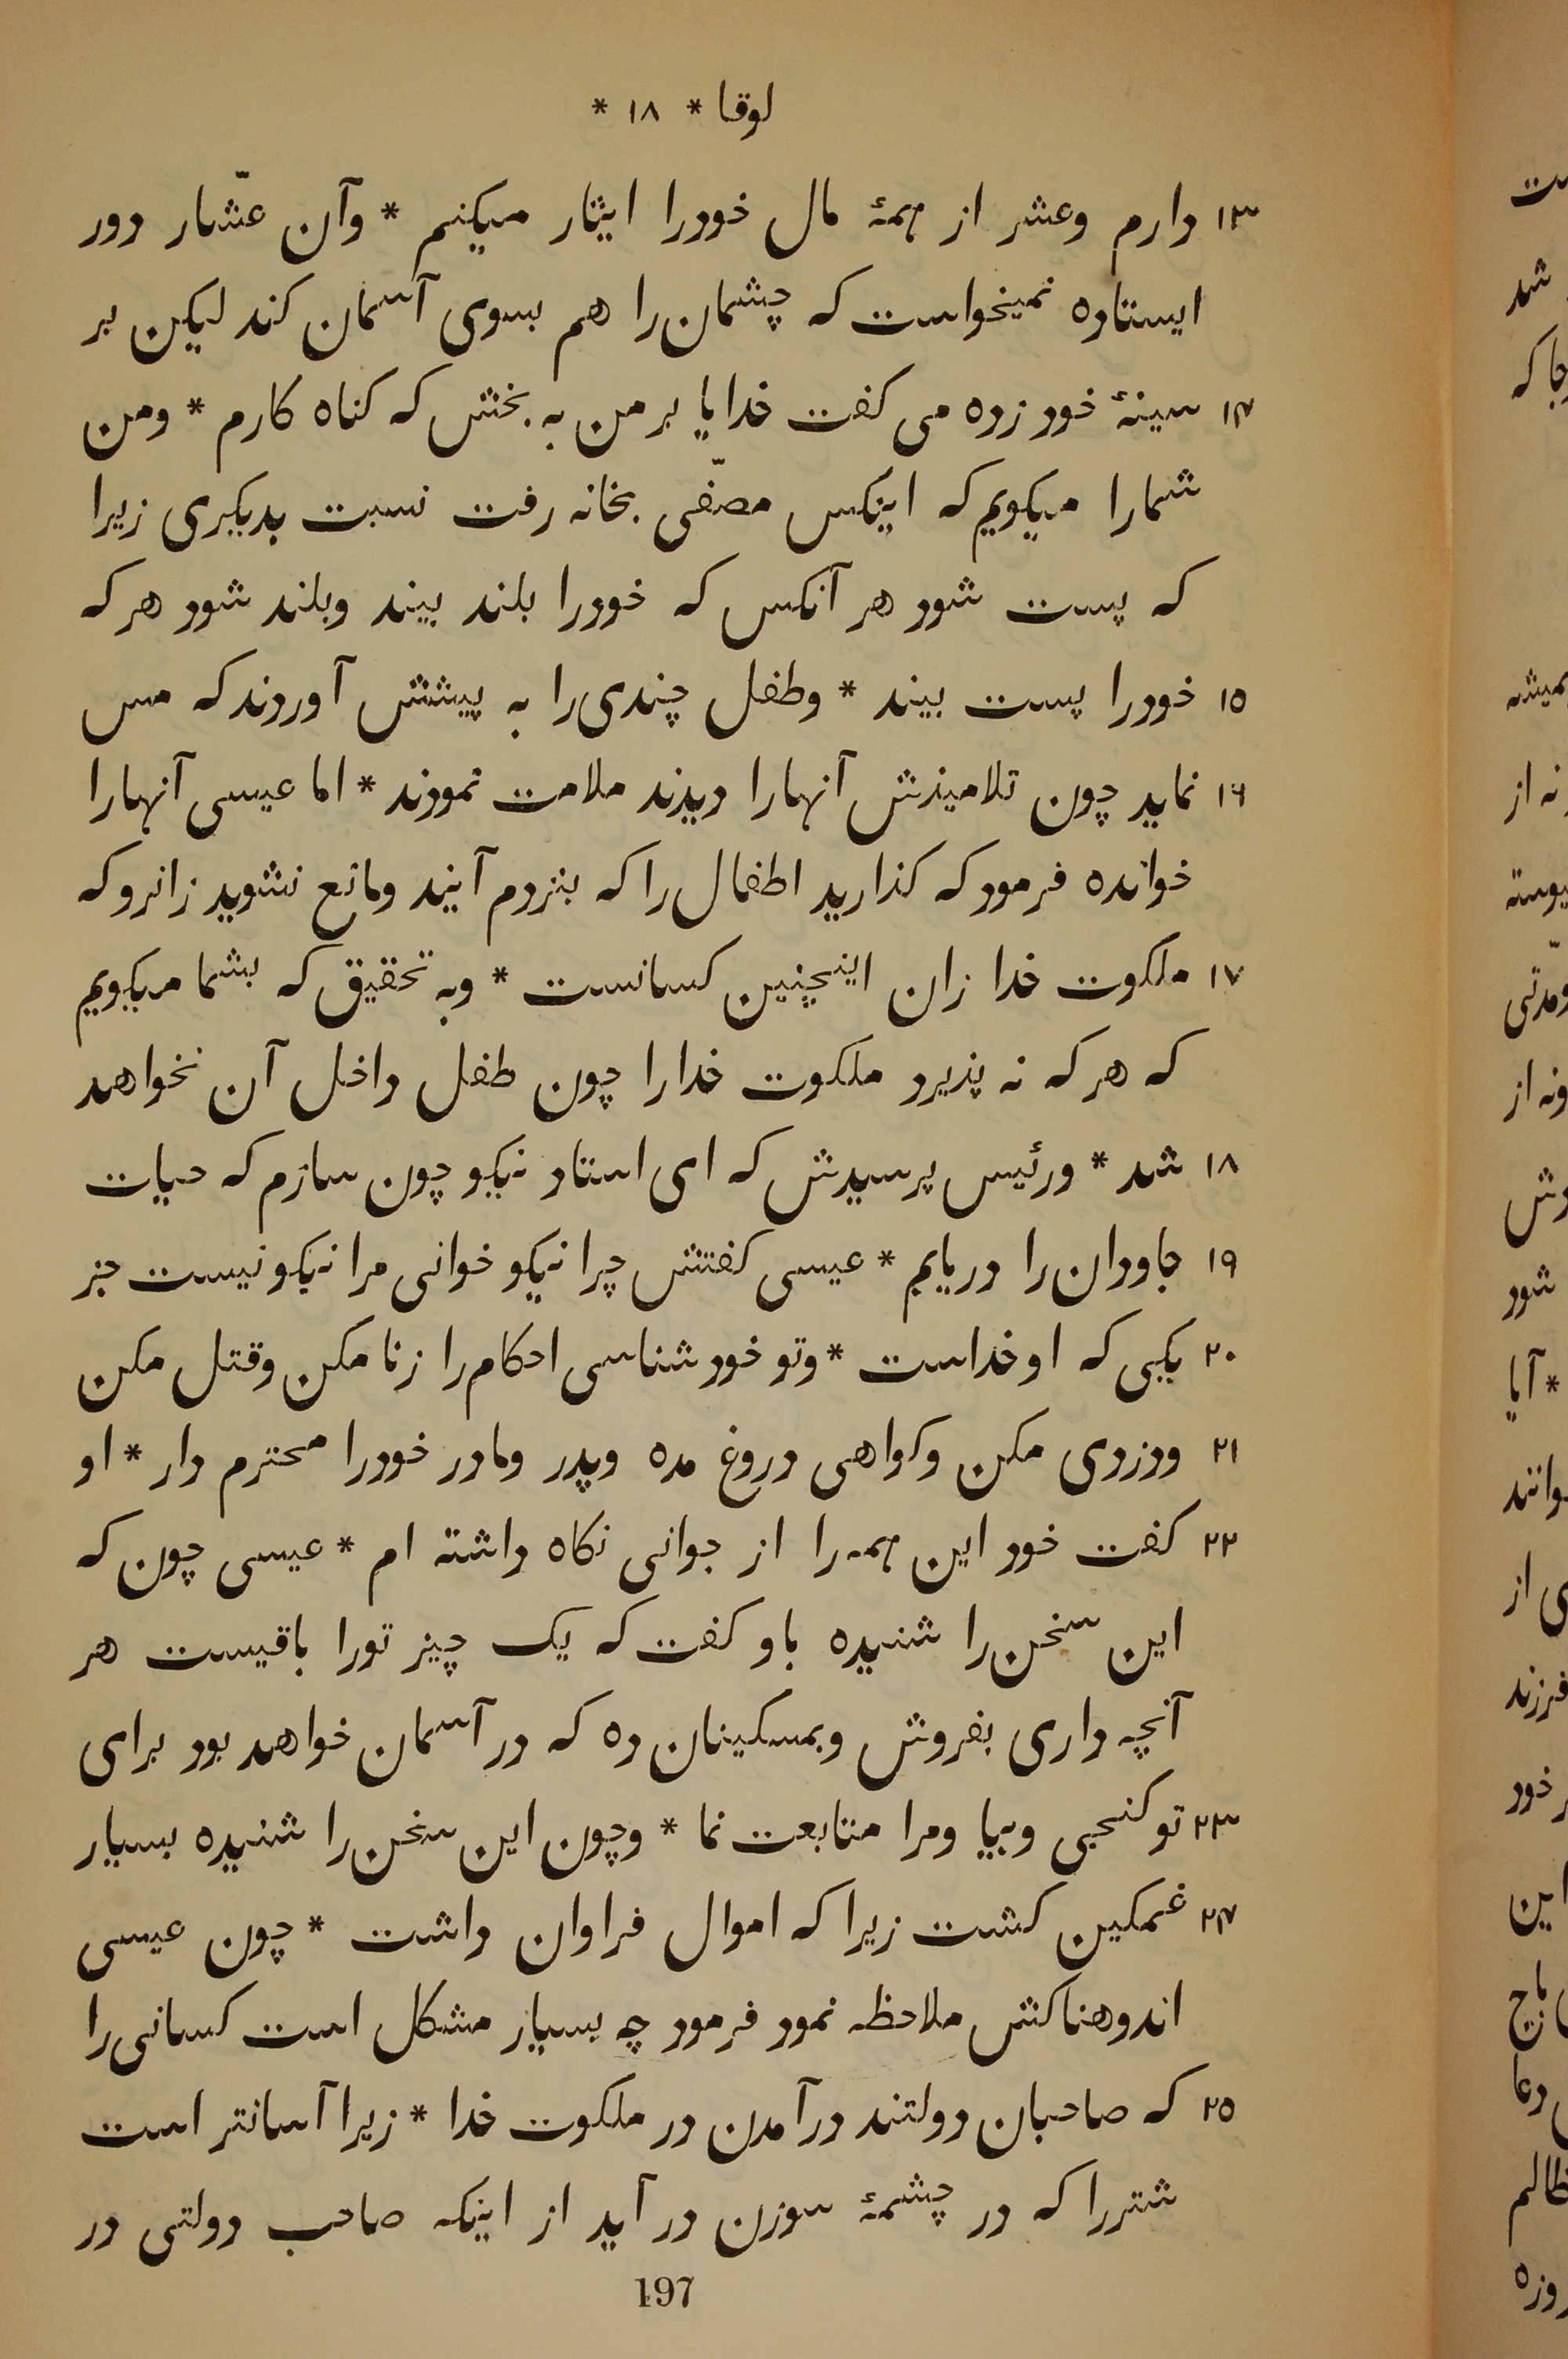 لوقا * ١٨ *
١٣ دارم وعشر از همهٔ مال خودرا ایثار میکنم * وآن عشّار دور
ایستاده نمیخواست که چشمان را هم بسوی آسمان کند لیکن بر
١۴ سینهٔ خود زده می کفت خدایا بر من به بخش که کناه کارم * ومن
شمارا میکویم که اینکس مصفّی بخانه رفت نسبت بدیکری زیرا
که پست شود هر آنکس که خودرا بلند بیند وبلند شود هر که
١٥ خودرا پست بیند * وطفل چندی را به پیشش آوردند که مس
١٦ نماید چون تلامیذش آنهارا دیدند ملامت نمودند * اما عیسی آنهارا
خوانده فرمود که کذارید اطفال را که بنزدم آیند ومانع نشوید زانرو که
١٧ ملکوت خدا زان اینچنین کسانست * وبه تحقیق که بشما میکویم
که هر که نه پذیرد ملکوت خدارا چون طفل داخل آن نخواهد
١٨ شد * ورئیس پرسیدش که ای استاد نیکو چون سازم که حیات
١٩ جاودان را دریابم * عیسی کفتش چرا نیکو خوانی مرا نیکو نیست جز
٢٠ یکی که او خداست * وتو خود شناسی احکام را زنا مکن وقتل مکن
٢١ ودزدی مکن وکواهی دروغ مده وپدر ومادر خودرا محترم دار * او
٢٢ کفت خود این همه را از جوانی نکاه داشته ام * عیسی چون که
این سخن را شنیده باو کفت که یک چیز تورا باقیست هر
آنچه داری بفروش وبمسکینان ده که در آسمان خواهد بود برای
٢٣ تو کنجی وبیا ومرا متابعت نما * وچون این سخن را شنیده بسیار
٢۴ غمکین کشت زیرا که اموال فراوان داشت * چون عیسی
اندوهناکش ملاحظه نمود فرمود چه بسیار مشکل است کسانی را
٢٥ که صاحبان دولتند درآمدن در ملکوت خدا * زیرا آسانتر است
شتررا که در چشمهٔ سوزن در آید از اینکه صاحب دولتی در
197